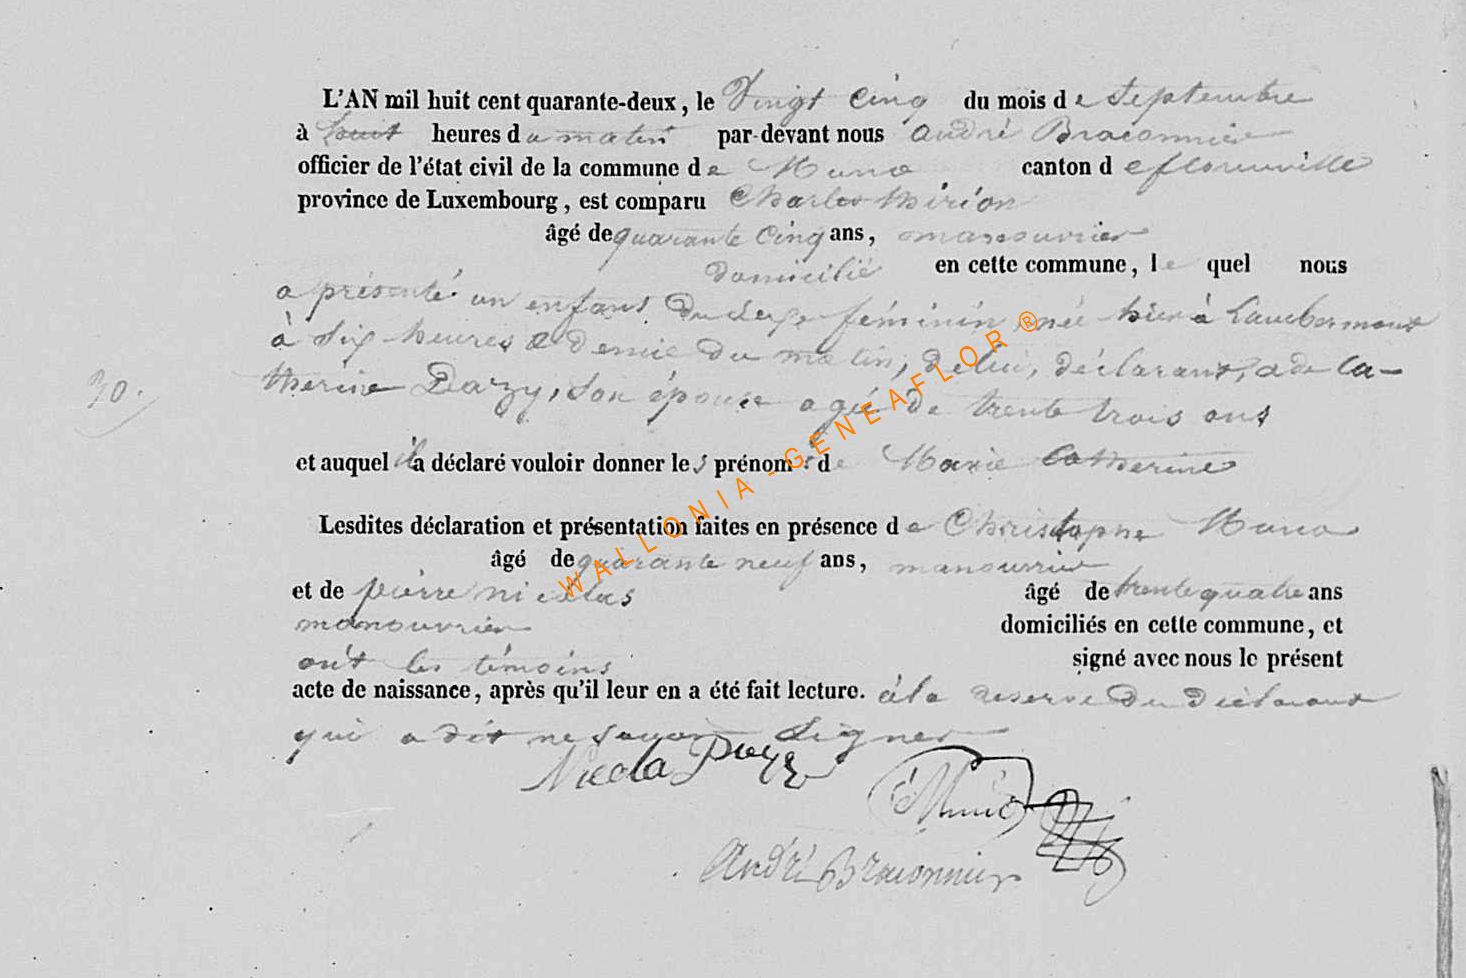 L'AN mil huit cent quarante-deux, le Vingt Cinq du mois de Septembre
à huit heures du matin par-devant nous André Braconnier
officier de l'état civil de la commune de Muno canton de florenville
province de Luxembourg, est comparu Charles thirion
âgé de quarante Cinq ans, manouvrier
domicilié en cette commune, le quel nous
a présenté un enfans Du Sexe féminin, née hier à Lambermont
à Six heures & demie du matin, de lui, déclarant, & de Ca-
30.
therine Dazy, Son épouse agée de trente trois ans
et auquel il a déclaré vouloir donner les prénoms de Marie Catherine
Lesdites déclaration et présentation faites en présence de Christophe Muno
âgé de quarante neuf ans, manouvrier
et de pierre nicolas âgé de trente quatre ans
manouvrier domiciliés en cette commune, et
ont les témoins signé avec nous le présent
acte de naissance, après qu'il leur en a été fait lecture. à la reserve du déclarant
qui a dit ne savoir Signer
Nicola
André Braconnier
WALLONIA - GENEAFLOR ®